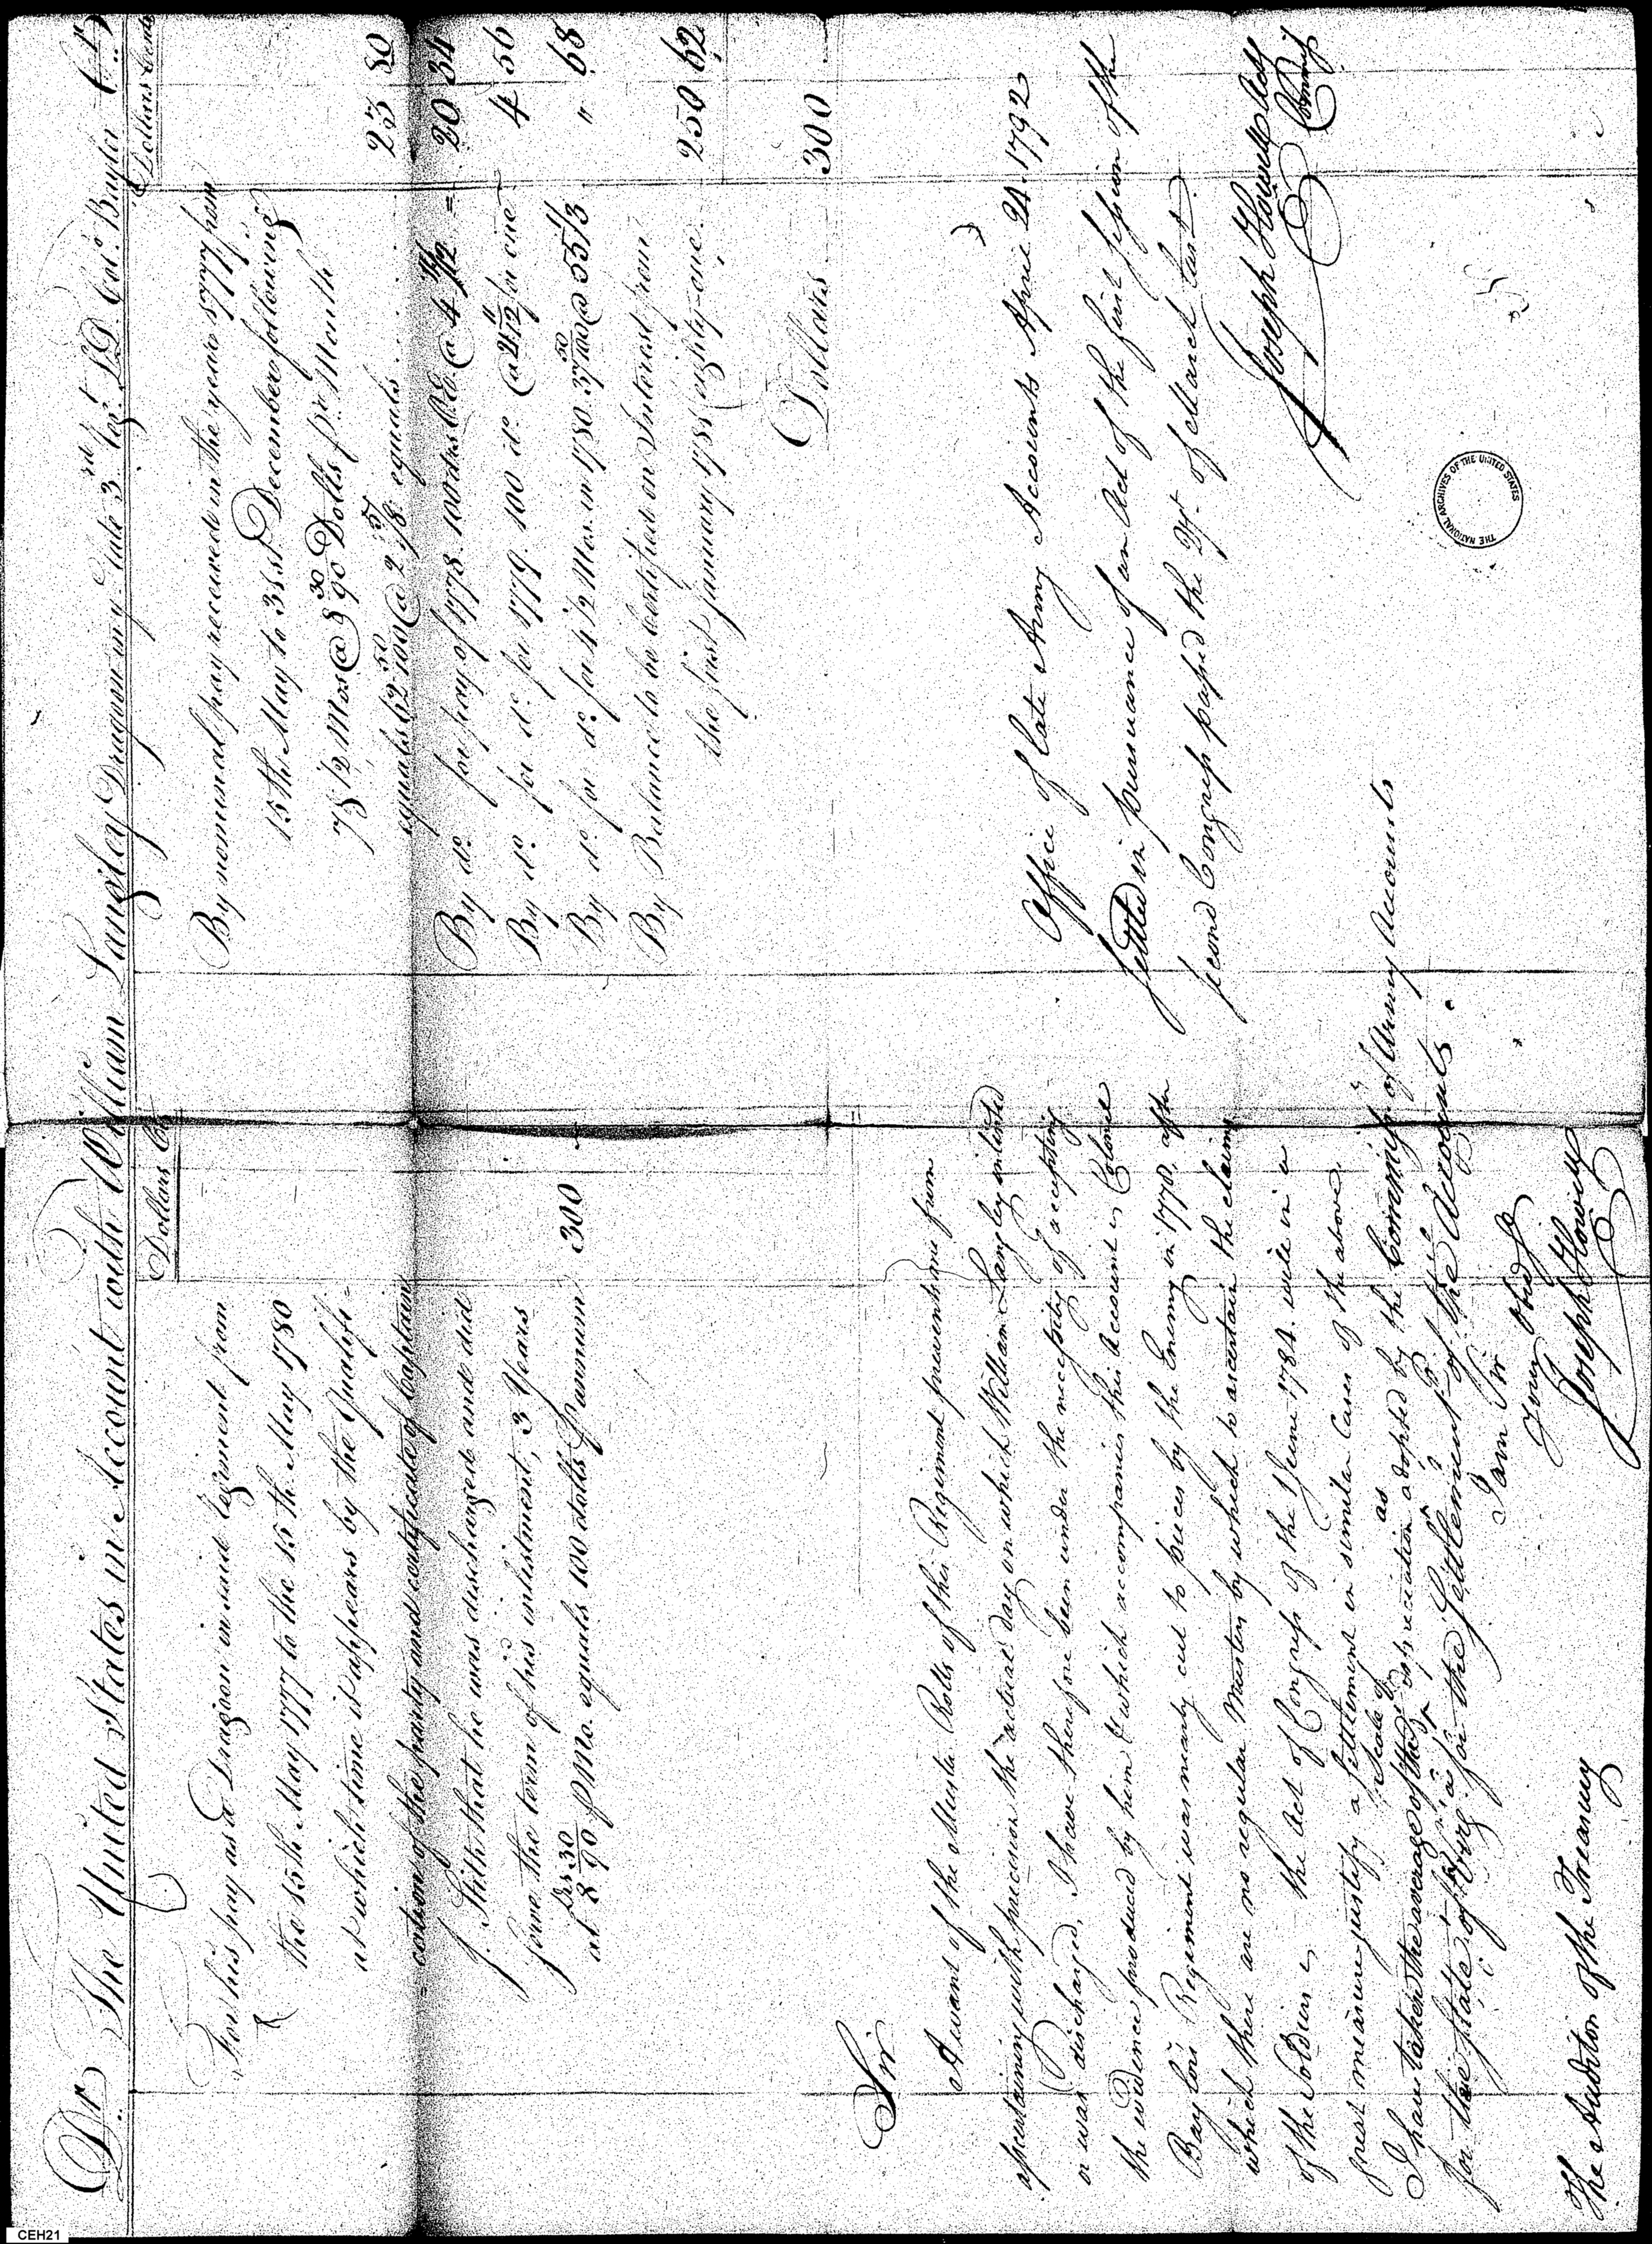 Dr. The United States in Account with William Langley Dragoon in late 3rd Regt. L D Colo. Baylor Cr.
Dollars Cts
For his pay as a Dragoon in said Regiment from
the 15th. May 1777 to the 15th. May 1780
at which time it appears by the Qualifi-
=cation of the party and certificate of Captain
J. Stith that he was discharged and did
serve the term of his inlistment, 3 Years
at 8 30/90 Drs. P Mo. equals 100 dolls P annum 300
Dollars Cents
By nominal pay received in the year 1777 from
15th. May to 31st December following
7 1/2 Mos @ 8 30/90 Dolls pr. Month
equals 62 50/100 @ 2 equals 23 80
By do. for pay of 1778. 100 @ 4 = 20 34
By do. for do. for 1779. 100 do. @ for one 4 56
By do. for do. for 4 1/2 Mos. in 1780. 37 50/100 @ " 68
By Balance to be certified on Interest from
the first January 1781 eighty-one. 250 62
Dollars 300
Sir
A want of the Muster Rolls of this Regiment prevents me from
ascertaining with precision the actual day on which William Langley inlisted
or was discharged, I have therefore been under the necessity of accepting
the evidence produced by him & which accompanies this Account is Colonel
Baylors Regiment was nearly cut to pieces by the Enemy in 1778, after
which there are no regular Musters by which to ascertain the claims
of the Soldiers the Act of Congress of the June 1784. will in a
great measure justify a settlement in similar Cases of the above.
I have taken the average of the scale of depreciation as adopted by the Commissr. of Army Accounts
for the State of Virga. for the Settlement of the Accounts.
I am Sir
Your Obed St
Joseph Howell
The Auditor of the Treasury
Office of late Army Accounts April 24. 1792
Settled in pursuance of an Act of the first session of the
second Congress passed the 27. of March last.
Joseph Howell Actg
Commr
THE NATIONAL ARCHIVES OF THE UNITED STATES
CEH21